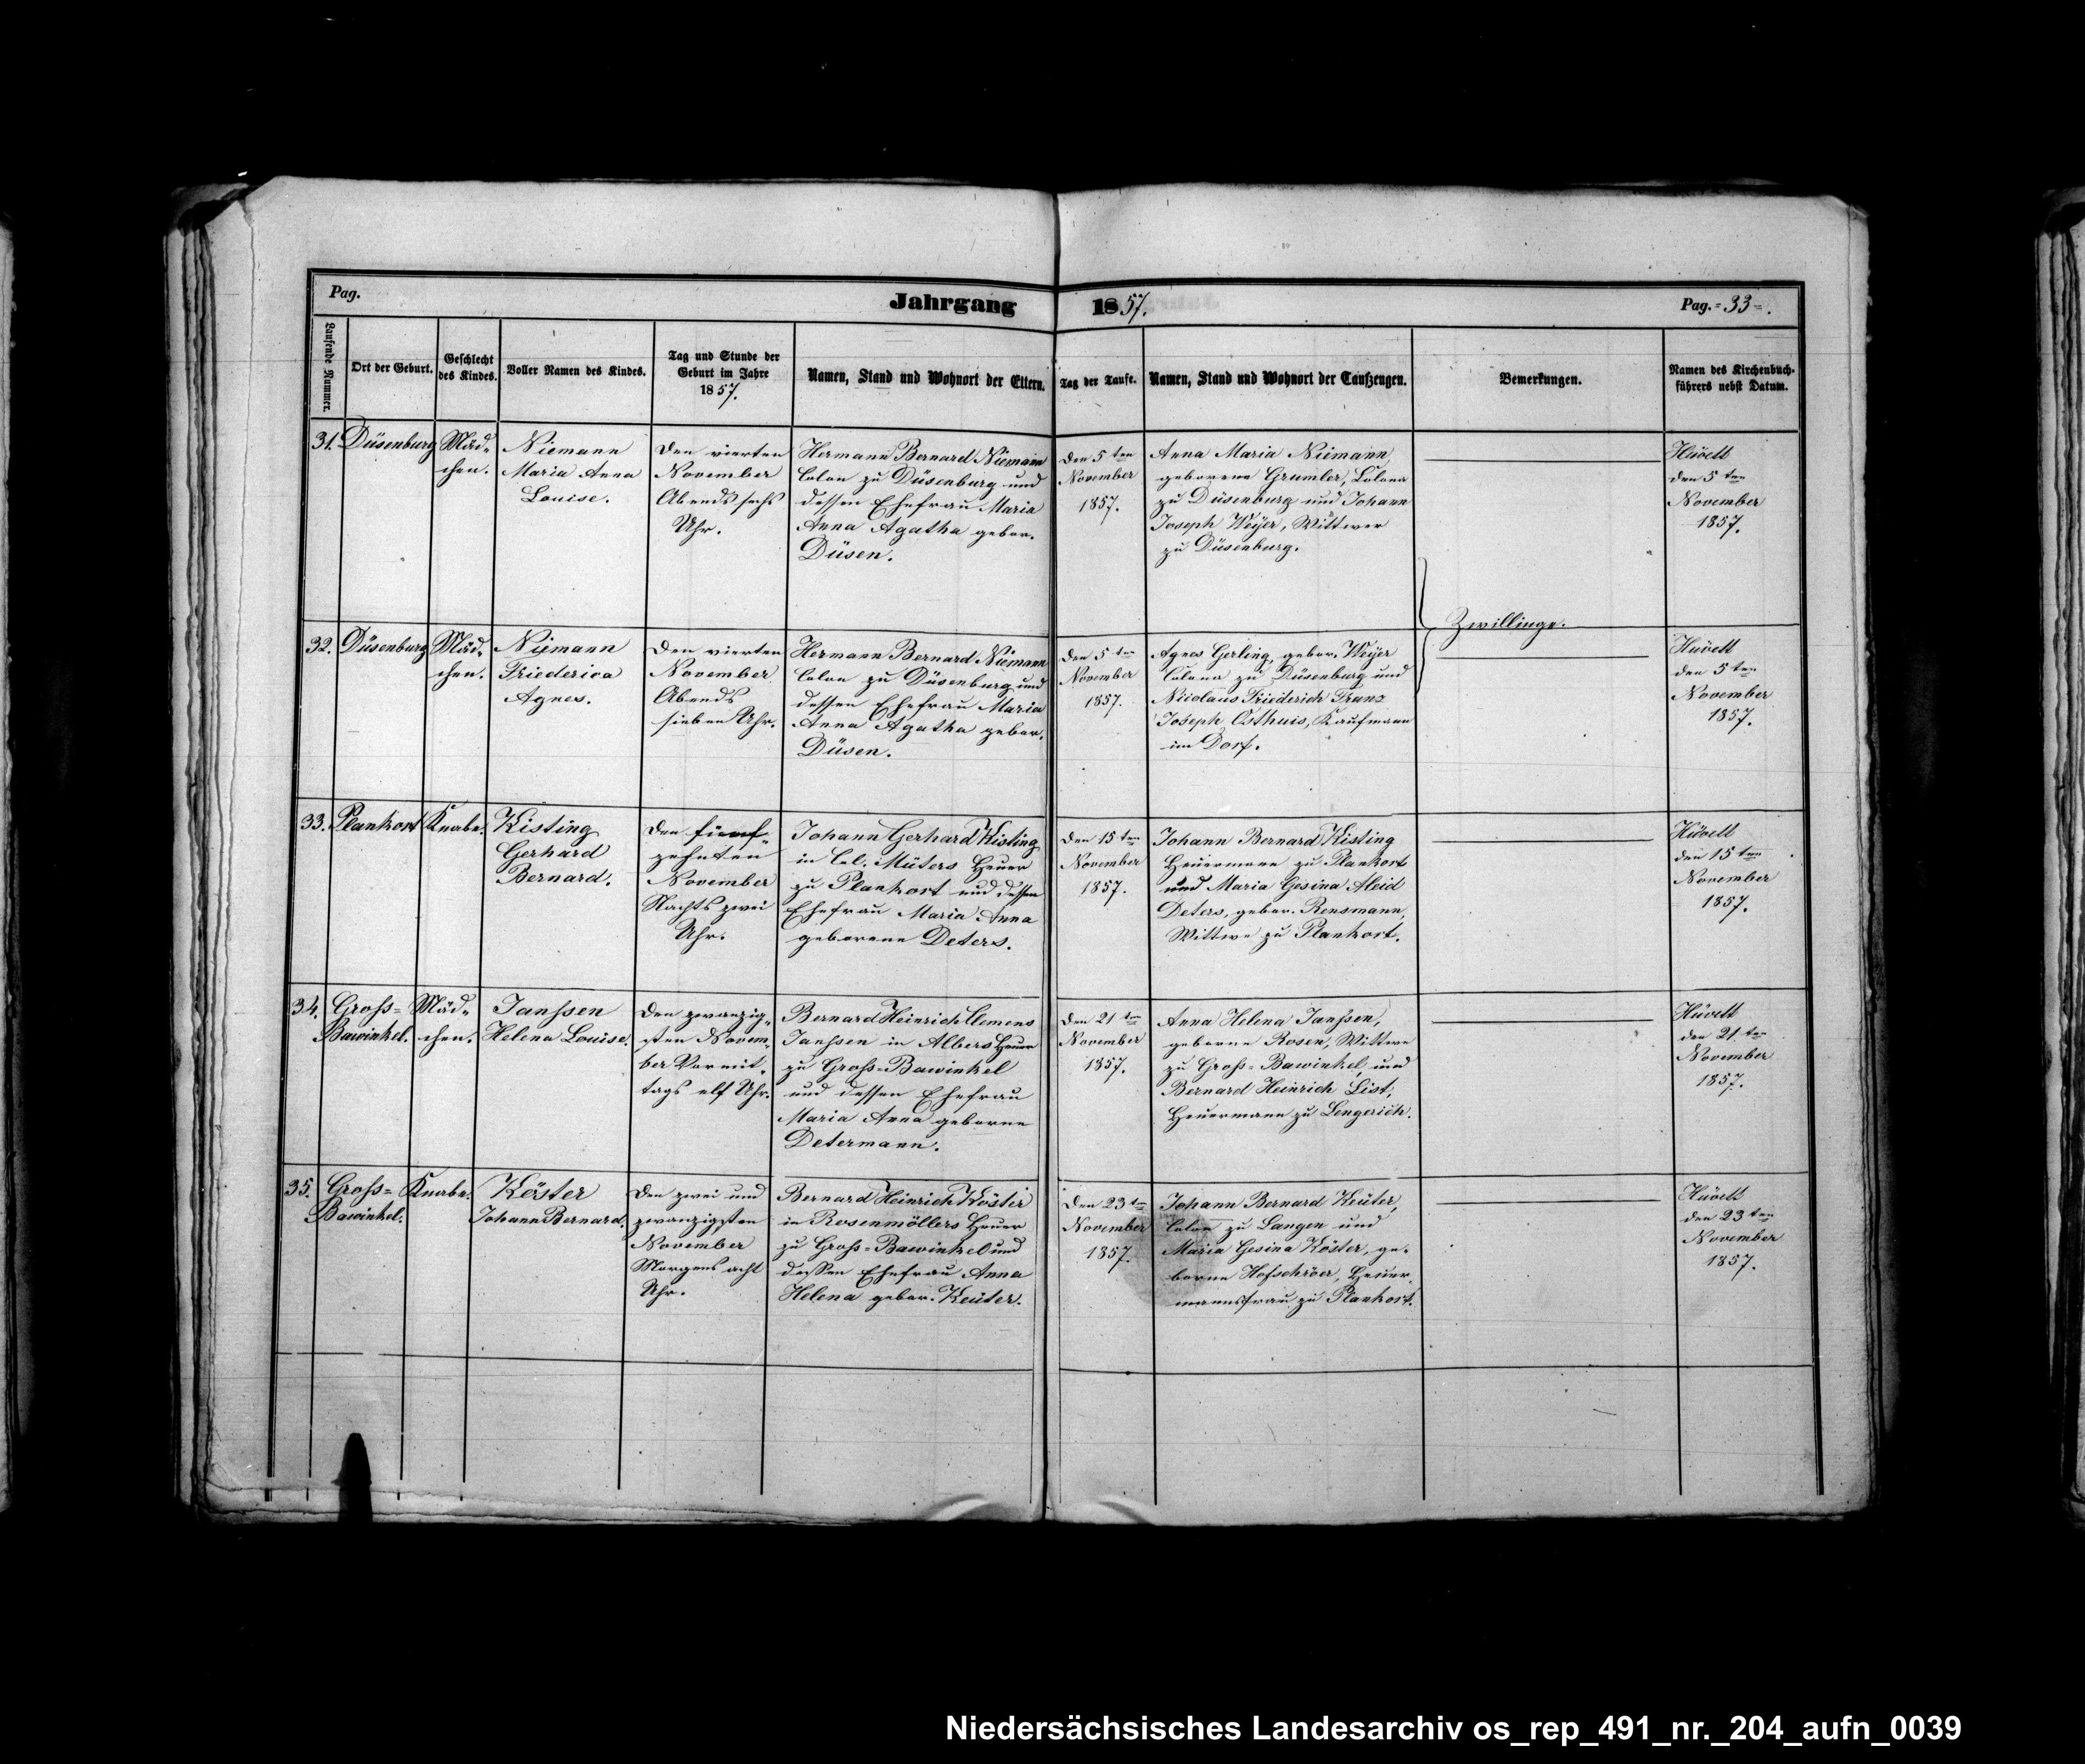 Pag.
Jahrgang 1857.
Pag. = 33 = .
Laufende Nummer.
Ort der Geburt.
Geschlecht
des Kindes.
Voller Namen des Kindes.
Tag und Stunde der
Geburt im Jahre
1857.
Namen, Stand und Wohnort der Eltern.
Tag der Taufe.
Namen, Stand und Wohnort der Taufzeugen.
Bemerkungen.
Namen des Kirchenbuch-
führers nebst Datum.
31.
Düsenburg
Mäd-
chen.
Niemann
Maria Anna
Louise.
Den vierten
November
Abends sechs
Uhr.
Hermann Bernard Niemann
Colon zu Düsenburg und
dessen Ehefrau Maria
Anna Agatha gebor.
Düsen.
Den 5ten
November
1857.
Anna Maria Niemann
geborene Grumler, Colona
zu Düsenburg und Johann
Joseph Weyer, Wittwer
zu Düsenburg.
Hüvett
den 5ten
November
1857.
Zwillinge.
32.
Düsenburg
Mäd-
chen.
Niemann
Friederica
Agnes.
Den vierten
November
Abends
sieben Uhr.
Hermann Bernard Niemann
Colon zu Düsenburg und
dessen Ehefrau Maria
Anna Agatha gebor.
Düsen.
Den 5ten
November
1857.
Agnes Gerling gebor. Weyer
Colona zu Düsenburg und
Nicolaus Friederich Franz
Joseph Osthuis, Kaufmann
im Dorf.
Hüvett
den 5ten
November
1857.
33.
Plankort
Knabe.
Kisting
Gerhard
Bernard.
Den fünf-
zehnten
November
Nachts zwei
Uhr.
Johann Gerhard Kisting
in Col. Müters Heuer
zu Plankort und dessen
Ehefrau Maria Anna
geborene Deters.
Den 15ten
November
1857.
Johann Bernard Kisting
Heuermann zu Plankort
und Maria Gesina Aleid
Deters, gebor. Rensmann,
Wittwe zu Plankort.
Hüvett
den 15ten
November
1857.
34.
Gross=
Bawinkel.
Mäd-
chen.
Janssen
Helena Louise.
Den zwanzig-
sten Novem-
ber Vormit-
tags elf Uhr.
Bernard Heinrich Clemens
Janssen in Albers Heuer
zu Gross=Bawinkel
und dessen Ehefrau
Maria Anna geborne
Determann.
Den 21ten
November
1857.
Anna Helena Janssen,
geborne Rosen, Wittwe
zu Gross=Bawinkel, und
Bernard Heinrich List,
Heuermann zu Lengerich.
Hüvett
den 21ten
November
1857.
35.
Gross=
Bawinkel.
Knabe.
Köster
Johann Bernard.
Den zwei und
zwanzigsten
November
Morgens acht
Uhr.
Bernard Heinrich Köster
in Rosenmöllers Heuer
zu Gross=Bawinkel und
dessen Ehefrau Anna
Helena gebor. Keüter.
Den 23ten
November
1857.
Johann Bernard Keüter,
Colon zu Langen und
Maria Gesina Köster, ge-
borne Hofschröer, Heuer-
mannsfrau zu Plankort.
Hüvett
den 23ten
November
1857.
Niedersächsisches Landesarchiv os_rep_491_nr._204_aufn_0039